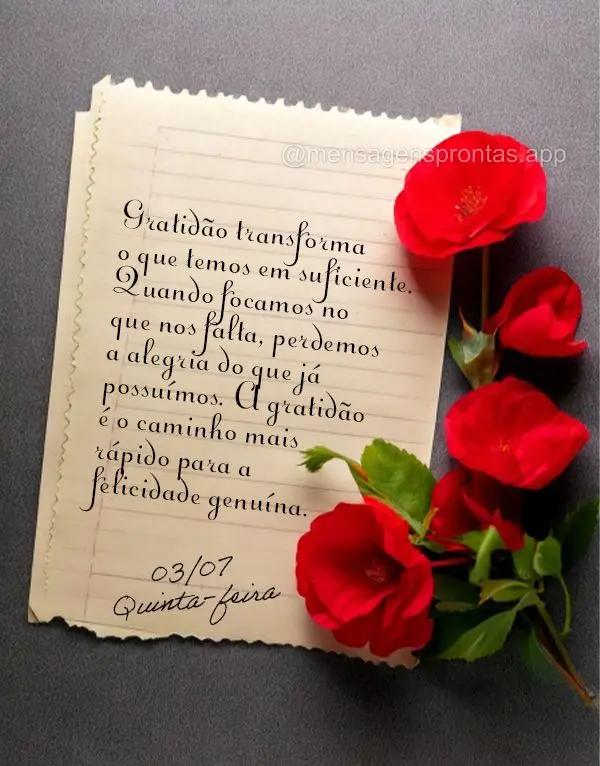 @mensagensprontas.app
Gratidão transforma
o que temos em suficiente.
Quando focamos no
que nos falta, perdemos
a alegria do que já
possuímos. A gratidão
é o caminho mais
rápido para a
felicidade genuína.
03/07
Quinta-feira